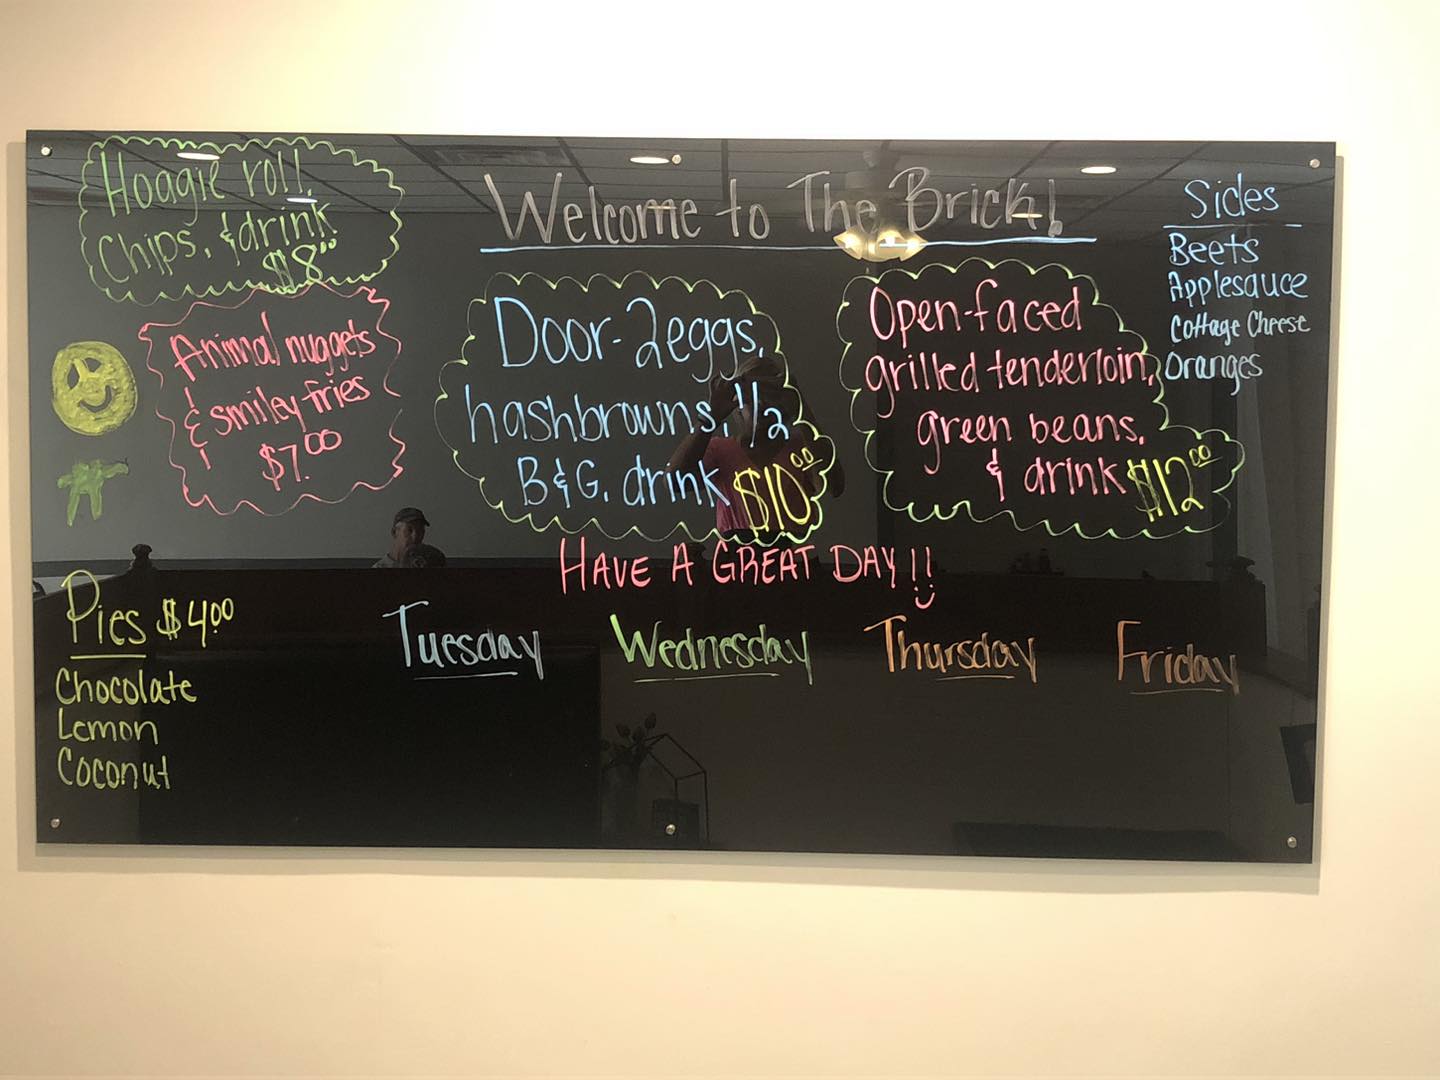 Hoagie roll,
Chips, & drink
$8.00
Animal nuggets
& smiley fries
$7.00
Pies $4.00
Chocolate
Lemon
Coconut
Welcome to The Brick!
Door-2eggs,
hashbrowns, 1/2
B&G, drink $10.00
Open-faced
grilled tenderloin,
green beans,
& drink $12.00
Sides
Beets
Applesauce
Cottage Cheese
Oranges
HAVE A GREAT DAY!!
Tuesday Wednesday Thursday Friday